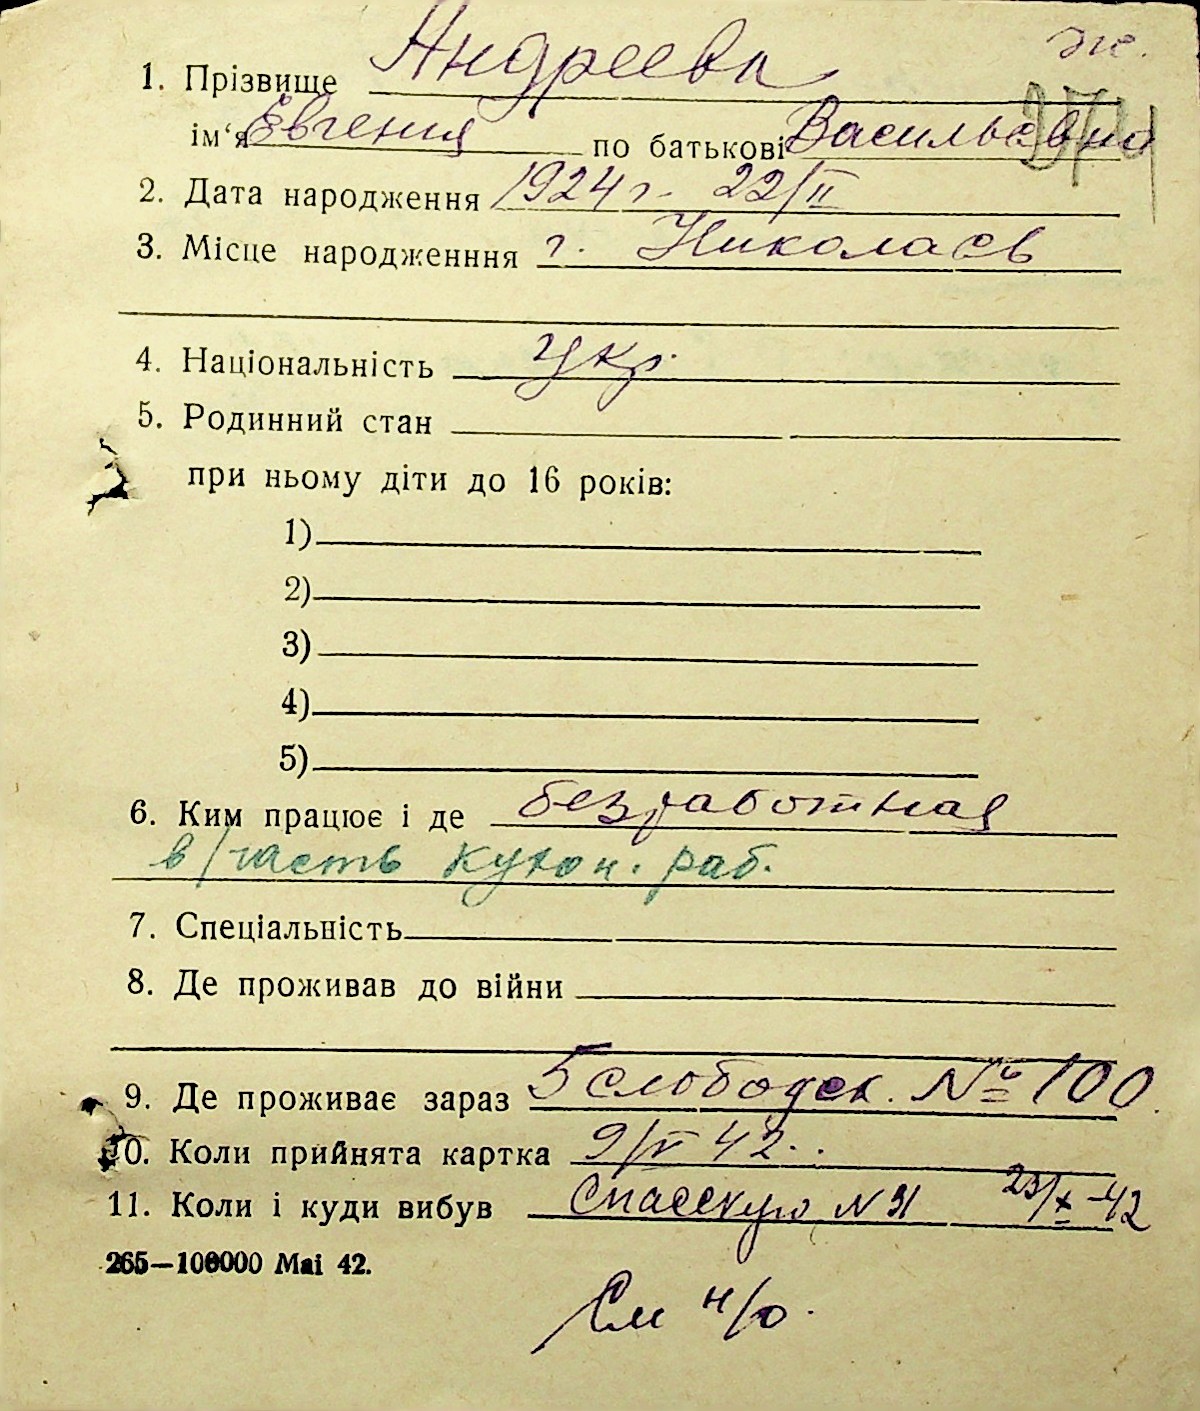 ж.
374
1. Прізвище Андреева
ім‘я Евгения по батькові Васильевна
2. Дата народження 1924 г. 22/II
3. Місце народженння г. Николаев
4. Національність укр.
5. Родинний стан
при ньому діти до 16 років:
1)
2)
3)
4)
5)
6. Ким працює і де безработная
в/часть кухон. раб.
7. Спеціальність
8. Де проживав до війни
9. Де проживає зараз 5 слободск. № 100
10. Коли прийнята картка 9/V 42.
11. Коли і куди вибув Спасскую N 31 23/X-42
265—100000 Маі 42.
См н/о.